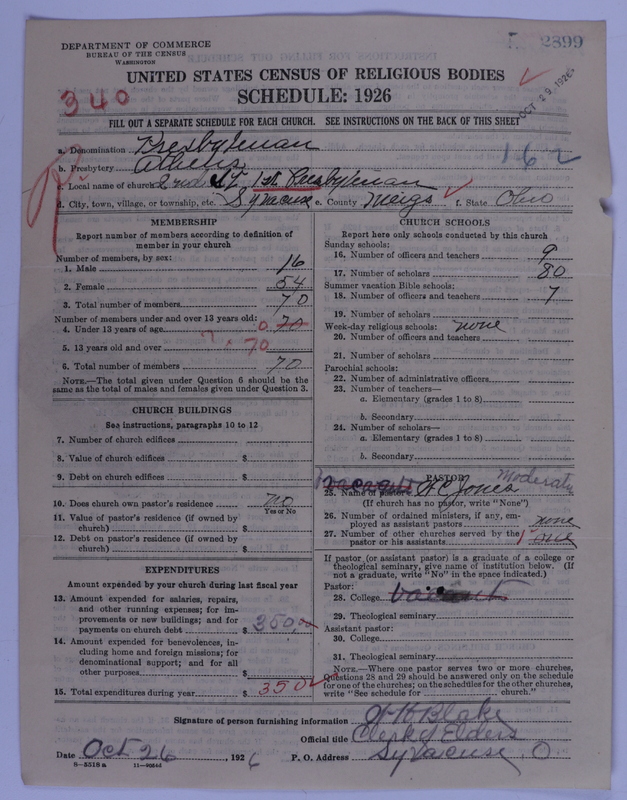 DEPARTMENT OF COMMERCE
BUREAU OF THE CENSUS
WASHINGTON
2899
UNITED STATES CENSUS OF RELIGIOUS BODIES
SCHEDULE: 1926
340
OCT 29 1926
FILL OUT A SEPARATE SCHEDULE FOR EACH CHURCH. SEE INSTRUCTIONS ON THE BACK OF THIS SHEET
a. Denomination Presbyterian
162
b. Presbytery Athens
c. Local name of church 1st Presbyterian
d. City, town, village, or township, etc. Syracuse e. County Meigs f. State Ohio
MEMBERSHIP
Report number of members according to definition of member in your church
Number of members, by sex:
1. Male 16
2. Female 54
3. Total number of members 70
Number of members under and over 13 years old:
4. Under 13 years of age 0 70
5. 13 years old and over 70
6. Total number of members 70
NOTE.—The total given under Question 6 should be the same as the total of males and females given under Question 3.
CHURCH BUILDINGS
See instructions, paragraphs 10 to 12
7. Number of church edifices
8. Value of church edifices $
9. Debt on church edifices $
10. Does church own pastor's residence no
Yes or No
11. Value of pastor's residence (if owned by church) $
12. Debt on pastor's residence (if owned by church) $
EXPENDITURES
Amount expended by your church during last fiscal year
13. Amount expended for salaries, repairs, and other running expenses; for improvements or new buildings; and for payments on church debt $ 350
14. Amount expended for benevolences, including home and foreign missions; for denominational support; and for all other purposes $
15. Total expenditures during year $ 350
CHURCH SCHOOLS
Report here only schools conducted by this church
Sunday schools:
16. Number of officers and teachers 9
17. Number of scholars 80
Summer vacation Bible schools:
18. Number of officers and teachers 7
19. Number of scholars
Week-day religious schools: none
20. Number of officers and teachers
21. Number of scholars
Parochial schools:
22. Number of administrative officers
23. Number of teachers—
a. Elementary (grades 1 to 8)
b. Secondary
24. Number of scholars—
a. Elementary (grades 1 to 8)
b. Secondary
PASTOR
25. Name of pastor vacant H C Jones Moderator
(If church has no pastor, write "None")
26. Number of ordained ministers, if any, employed as assistant pastors none
27. Number of other churches served by the pastor or his assistants 1 one
If pastor (or assistant pastor) is a graduate of a college or theological seminary, give name of institution below. (If not a graduate, write "No" in the space indicated.)
Pastor:
28. College vacant
29. Theological seminary
Assistant pastor:
30. College
31. Theological seminary
NOTE.—Where one pastor serves two or more churches, Questions 28 and 29 should be answered only on the schedule for one of the churches; on the schedules for the other churches, write "See schedule for church."
Signature of person furnishing information H Blake
Official title Clerk of Elders
Date Oct 26, 1926 P. O. Address Syracuse, O
8—5518 a